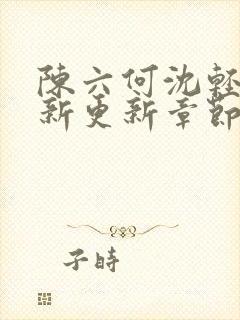 陳六何沈輕
新更新章節
子時